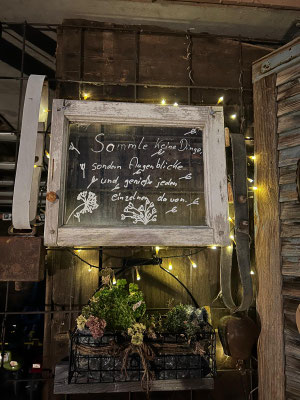 Sammle keine Dinge,
sondern Augenblicke
und genieße jeden
Einzelnen davon.